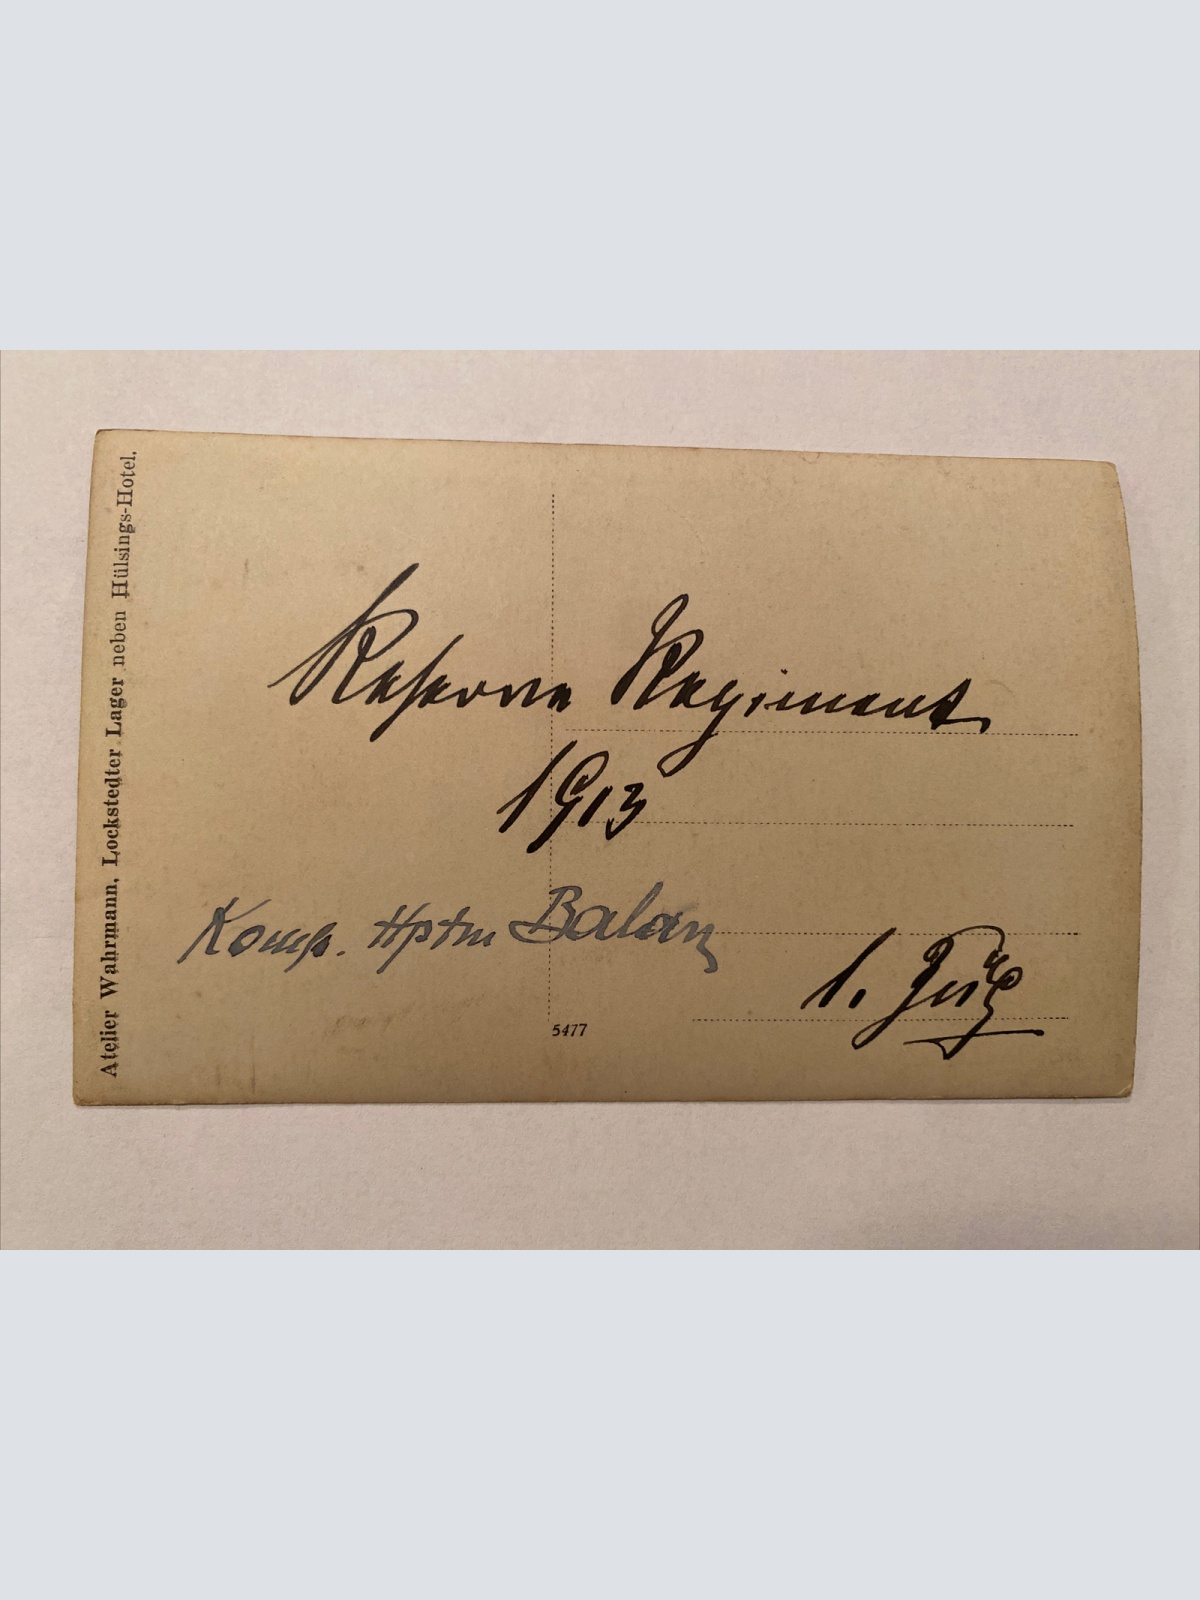 Atelier Wahrmann, Lockstedter Lager neben Hülsings-Hotel.
Reserve Regiment
1913
Komp. Hptm Balan
1. Zug
5477